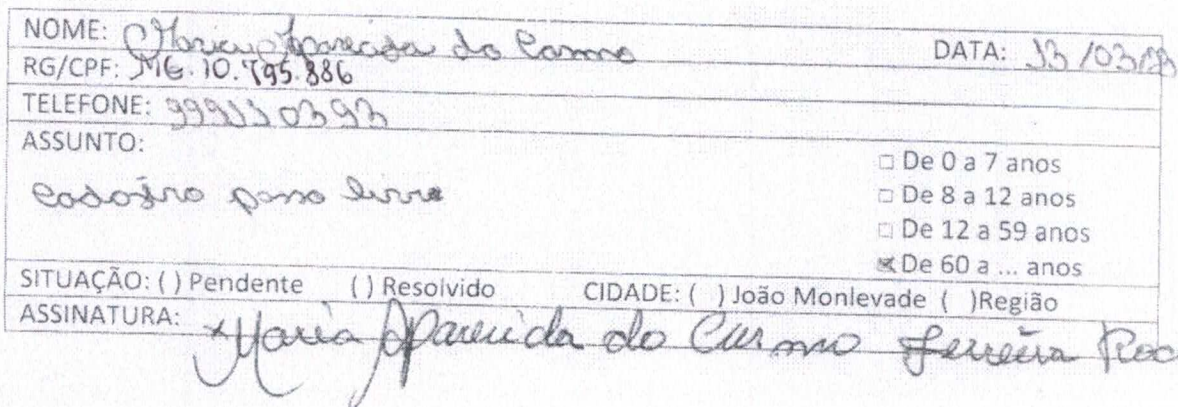 NOME: Maria Aparecida do Carmo DATA: 13/03/23
RG/CPF: MG.10.795.886
TELEFONE: 999110393
ASSUNTO:
Cadastro passe livre
□ De 0 a 7 anos
□ De 8 a 12 anos
□ De 12 a 59 anos
☒ De 60 a ... anos
SITUAÇÃO: ( ) Pendente ( ) Resolvido CIDADE: ( ) João Monlevade ( )Região
ASSINATURA: x Maria Aparecida do Carmo Ferreira Roc